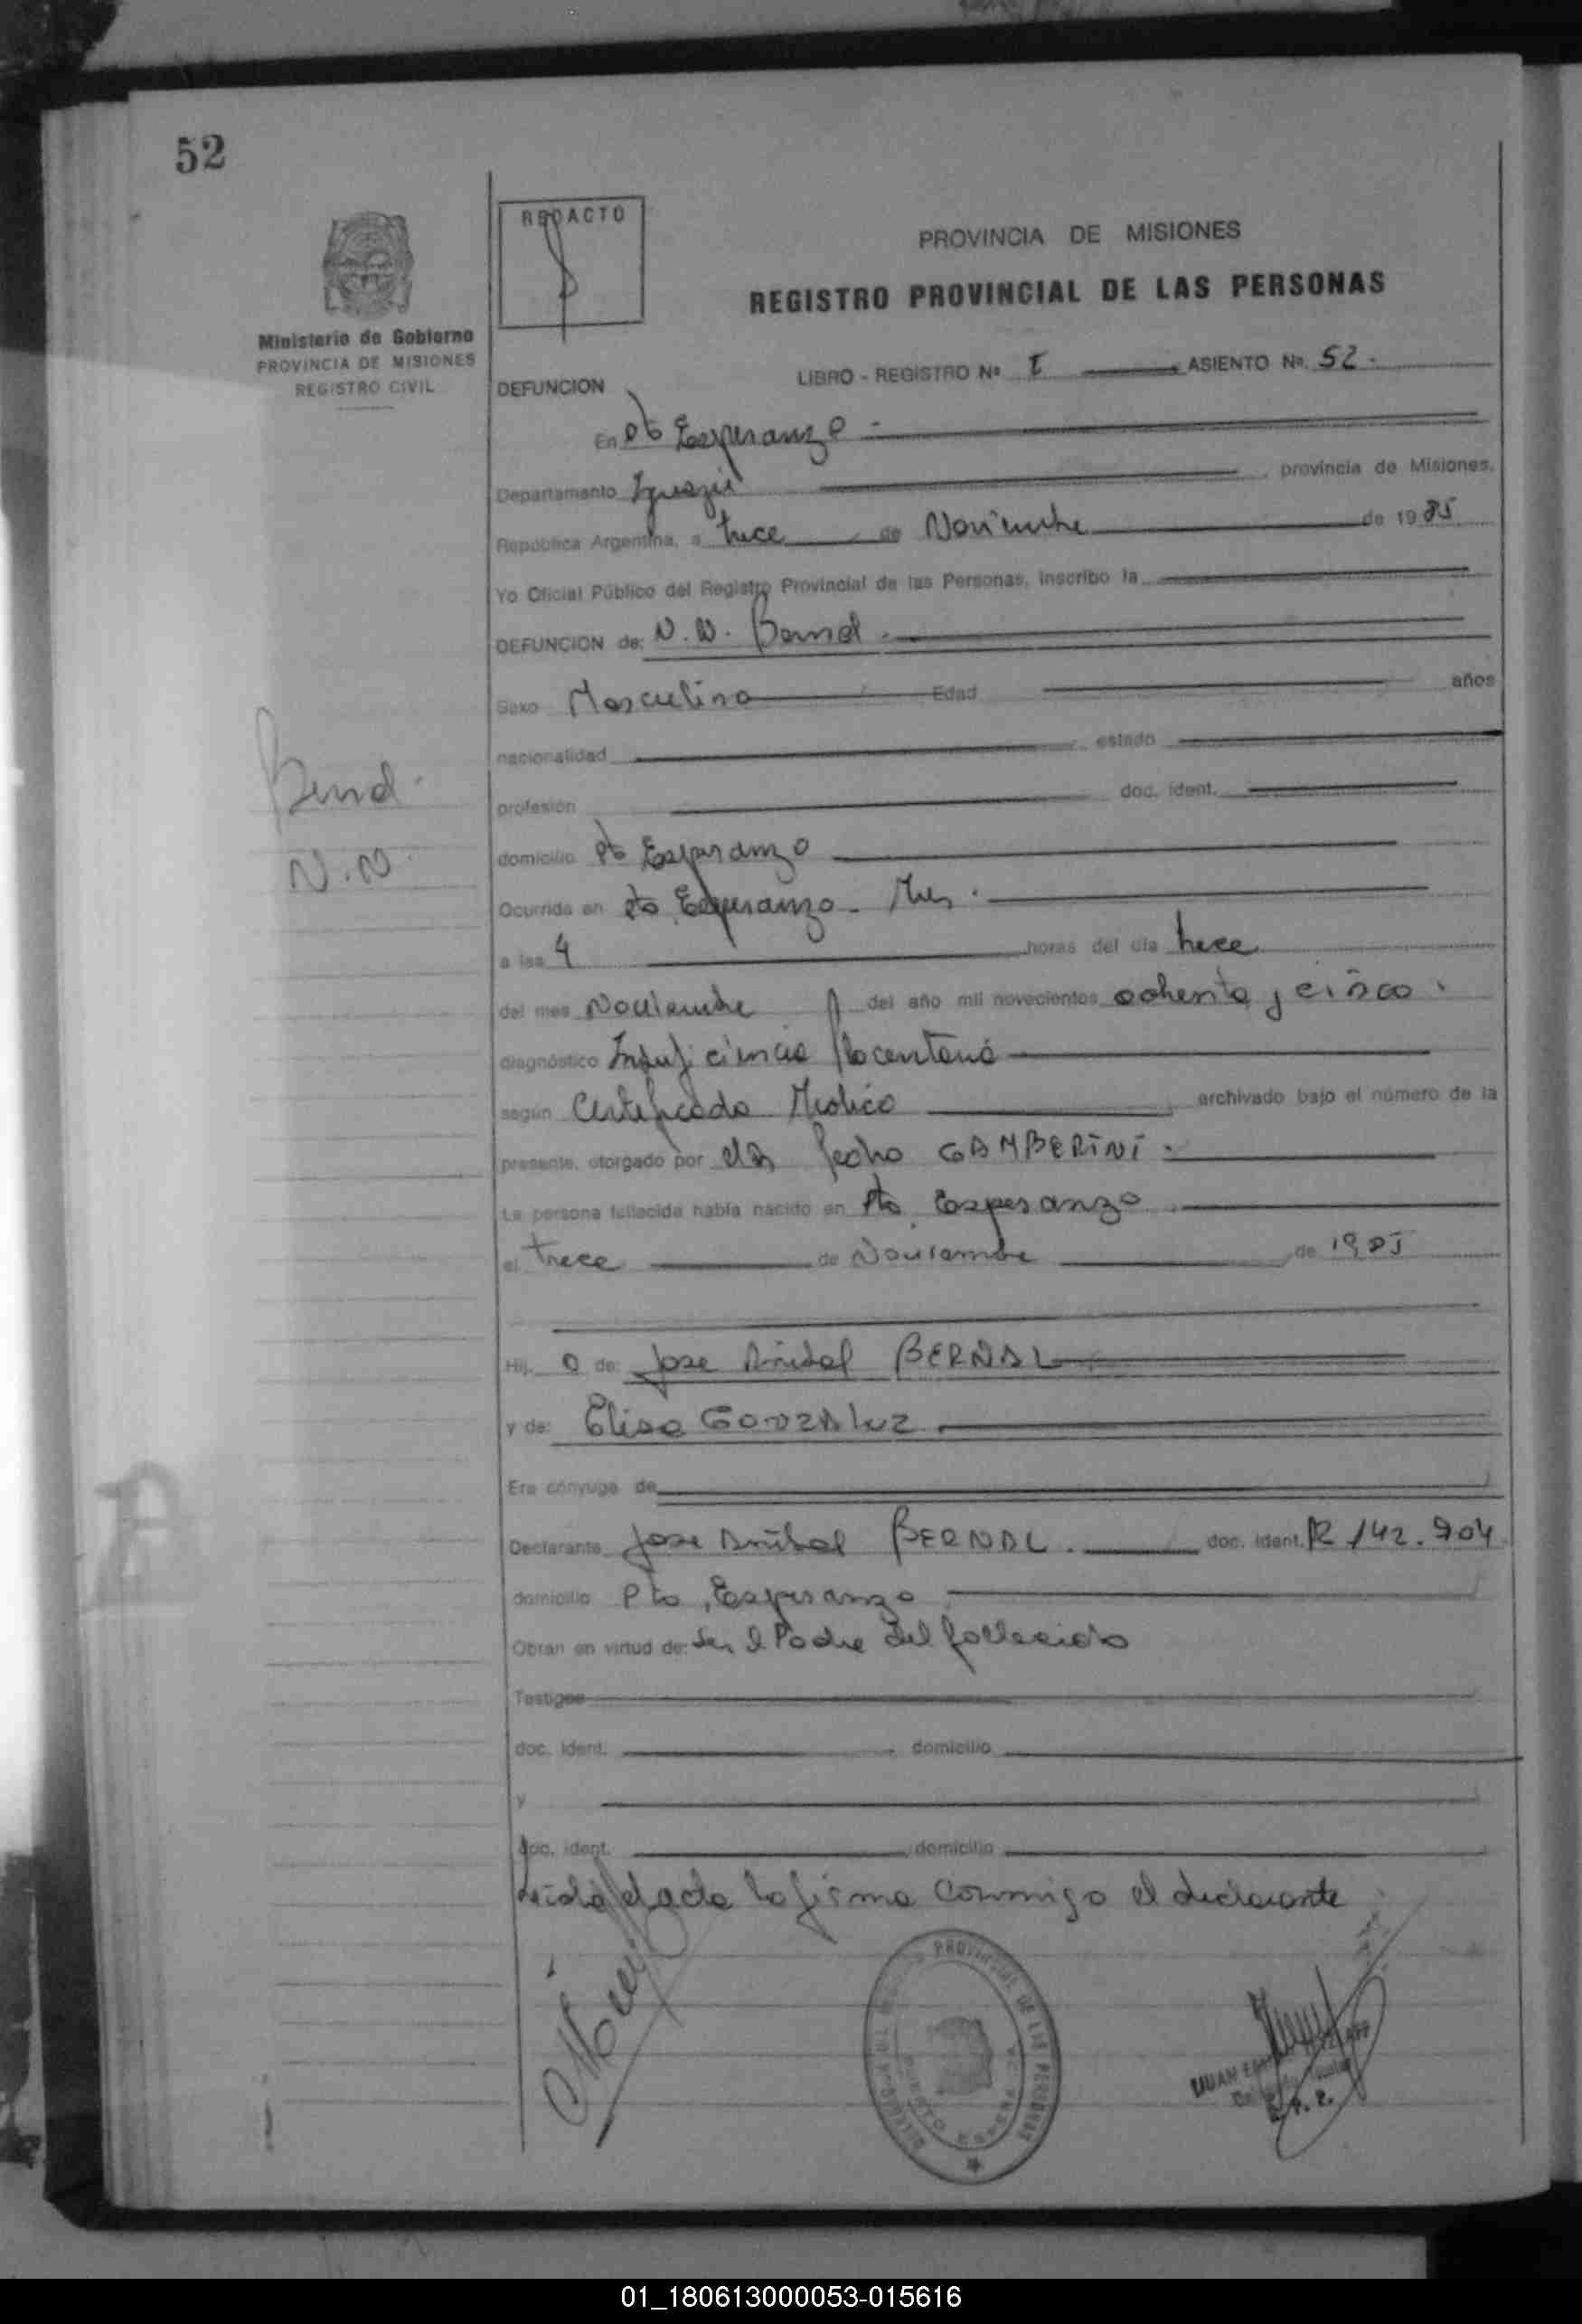 52
REDACTO
PROVINCIA DE MISIONES
REGISTRO PROVINCIAL DE LAS PERSONAS
Ministerio de Gobierno
PROVINCIA DE MISIONES
REGISTRO CIVIL
LIBRO - REGISTRO Nº I ASIENTO Nº 52.
DEFUNCION
En Pto Esperanza -
Departamento Iguazú provincia de Misiones.
República Argentina, a trece de Noviembre de 1985
Yo Oficial Público del Registro Provincial de las Personas, inscribo la
DEFUNCION de: N.N. Bernal.
Sexo Masculino Edad años
nacionalidad estado
Bernal.
N.N.
profesión doc. ident.
domicilio Pto Esperanza
Ocurrida en Pto Esperanza - Mnes.
a las 4 horas del día trece
del mes Noviembre del año mil novecientos ochenta y cinco.
diagnóstico Insuficiencia Placentaria
según Certificado Medico archivado bajo el número de la
presente, otorgado por Pedro GAMBERINI.
La persona fallecida había nacido en Pto. Esperanza
el trece de Noviembre de 1985
Hij o de: Jose Anibal BERNAL
y de: Elisa GONZALEZ
Era cónyuge de
Declarante Jose Anibal BERNAL. doc. ident. R 142.904
domicilio Pto. Esperanza
Obran en virtud de: Ser el Padre del fallecido
Testigos
doc. ident. domicilio
y
doc. ident. domicilio
Leida el acta la firma conmigo el declarante
PROVINCIAL DE LAS PERSONAS
PUERTO ESPERANZA
JUAN
01_180613000053-015616